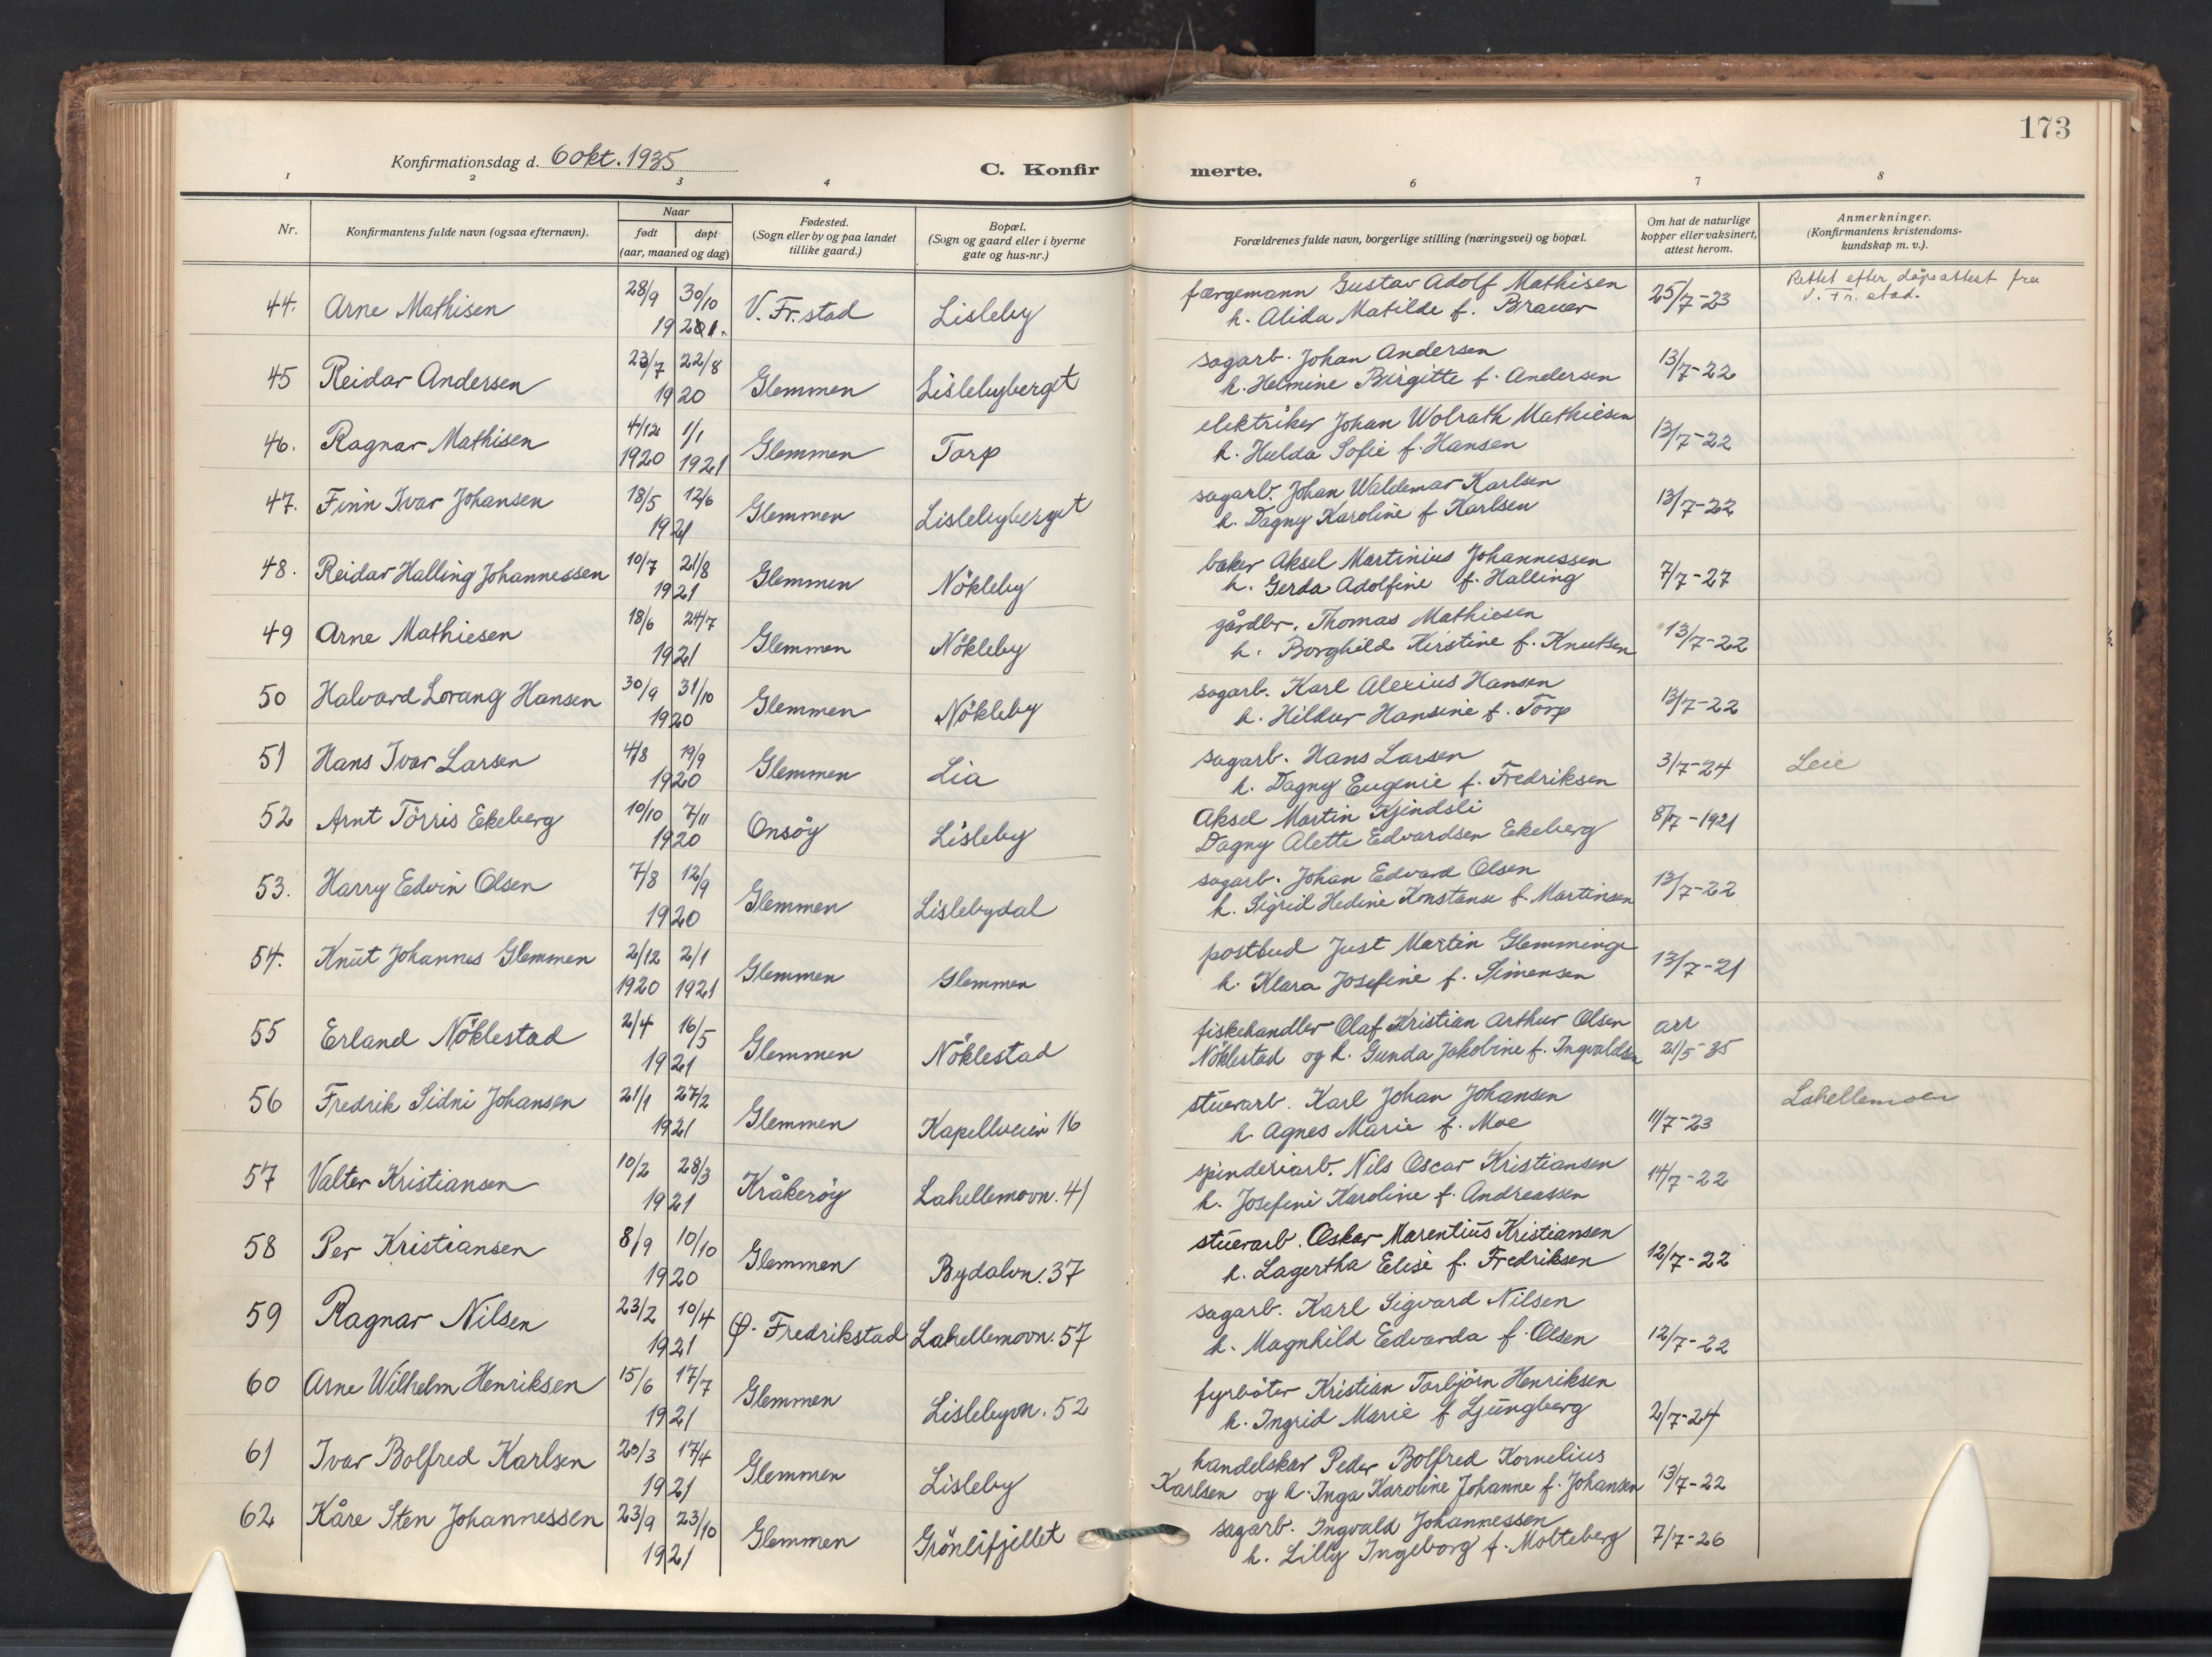 173
Konfirmationsdag d. 6 okt. 1935
C. Konfir merte.
1 2 3 4 6 7 8
Nr. | Konfirmantens fulde navn (ogsaa efternavn). | Naar født | døpt (aar, maaned og dag) | Fødested. (Sogn eller by og paa landet tillike gaard.) | Bopæl. (Sogn og gaard eller i byerne gate og hus-nr.) | Forældrenes fulde navn, borgerlige stilling (næringsvei) og bopæl. | Om hat de naturlige kopper eller vaksinert, attest herom. | Anmerkninger. (Konfirmantens kristendoms-kundskap m. v.).
44. Arne Mathisen 28/9 30/10 1921. V. Fr.stad Lisleby færgemann Gustav Adolf Mathisen 25/7-23 Rettet efter dåpsattest fra
h. Alida Matilde f. Brauer V. Fr. stad.
45 Reidar Andersen 23/7 22/8 1920 Glemmen Lislebyberget sagarb. Johan Andersen 13/7-22
h. Helmine Birgitte f. Andersen
46. Ragnar Mathisen 4/12 1920 1/1 1921 Glemmen Torp elektriker Johan Wolrath Mathiesen 13/7-22
h. Hulda Sofie f. Hansen
47. Finn Ivar Johansen 18/5 12/6 1921 Glemmen Lislebyberget sagarb. Johan Waldemar Karlsen 13/7-22
h. Dagny Karoline f. Karlsen
48. Reidar Halling Johannessen 10/7 21/8 1921 Glemmen Nökleby baker Aksel Martinius Johannessen 7/7-27
h. Gerda Adolfine f. Halling
49 Arne Mathiesen 18/6 24/7 1921 Glemmen Nökleby gårdbr. Thomas Mathiesen 13/7-22
h. Borghild Kirstine f. Knutsen
50 Halvard Lorang Hansen 30/9 31/10 1920 Glemmen Nökleby sagarb. Karl Alexius Hansen 13/7-22
h. Hildur Hansine f. Torp
51 Hans Ivar Larsen 4/8 19/9 1920 Glemmen Lia sagarb. Hans Larsen 3/7-24 Leie
h. Dagny Eugenie f. Fredriksen
52 Arnt Törris Ekeberg 10/10 7/11 1920 Onsöy Lisleby Aksel Martin Kjindsli 8/7-1921
Dagny Alette Edvardsen Ekeberg
53. Harry Edvin Olsen 7/8 12/9 1920 Glemmen Lislebydal sagarb. Johan Edvard Olsen 13/7-22
h. Sigrid Hedine Konstanse f. Martinsen
54. Knut Johannes Glemmen 2/12 1920 2/1 1921 Glemmen Glemmen postbud Just Martin Glemminge 13/7-21
h. Klara Josefine f. Simensen
55 Erland Nöklestad 2/4 16/5 1921 Glemmen Nöklestad fiskehandler Olaf Kristian Arthur Olsen arr
Nöklestad og h. Gunda Jakobine f. Ingvaldsen 21/5-35
56 Fredrik Sidni Johansen 21/1 27/2 1921 Glemmen Kapellveien 16 stuerarb. Karl Johan Johansen 11/7-23 Lahellemoen
h. Agnes Marie f. Moe
57 Valter Kristiansen 10/2 28/3 1921 Kråkeröy Lahellemovn. 41 spinderiarb. Nils Oscar Kristiansen 14/7-22
h. Josefine Karoline f. Andreassen
58 Per Kristiansen 8/9 10/10 1920 Glemmen Bydalvn. 37 stuerarb. Oskar Marentius Kristiansen 12/7-22
h. Lagertha Elise f. Fredriksen
59 Ragnar Nilsen 23/2 10/4 1921 Ø. Fredrikstad Lahellemovn. 57 sagarb. Karl Sigvard Nilsen 12/7-22
h. Magnhild Edvarda f. Olsen
60 Arne Wilhelm Henriksen 15/6 17/7 1921 Glemmen Lislebyvn. 52 fyrböter Kristian Torbjörn Henriksen 2/7-24
h. Ingrid Marie f. Ljungberg
61 Ivar Bolfred Karlsen 20/3 17/4 1921 Glemmen Lisleby handelskar Peder Bolfred Kornelius 13/7-22
Karlsen og h. Inga Karoline Johanne f. Johansen
62 Kåre Sten Johannessen 23/9 23/10 1921 Glemmen Grönlifjellet sagarb. Ingvald Johannessen 7/7-26
h. Lilly Ingeborg f. Molteberg